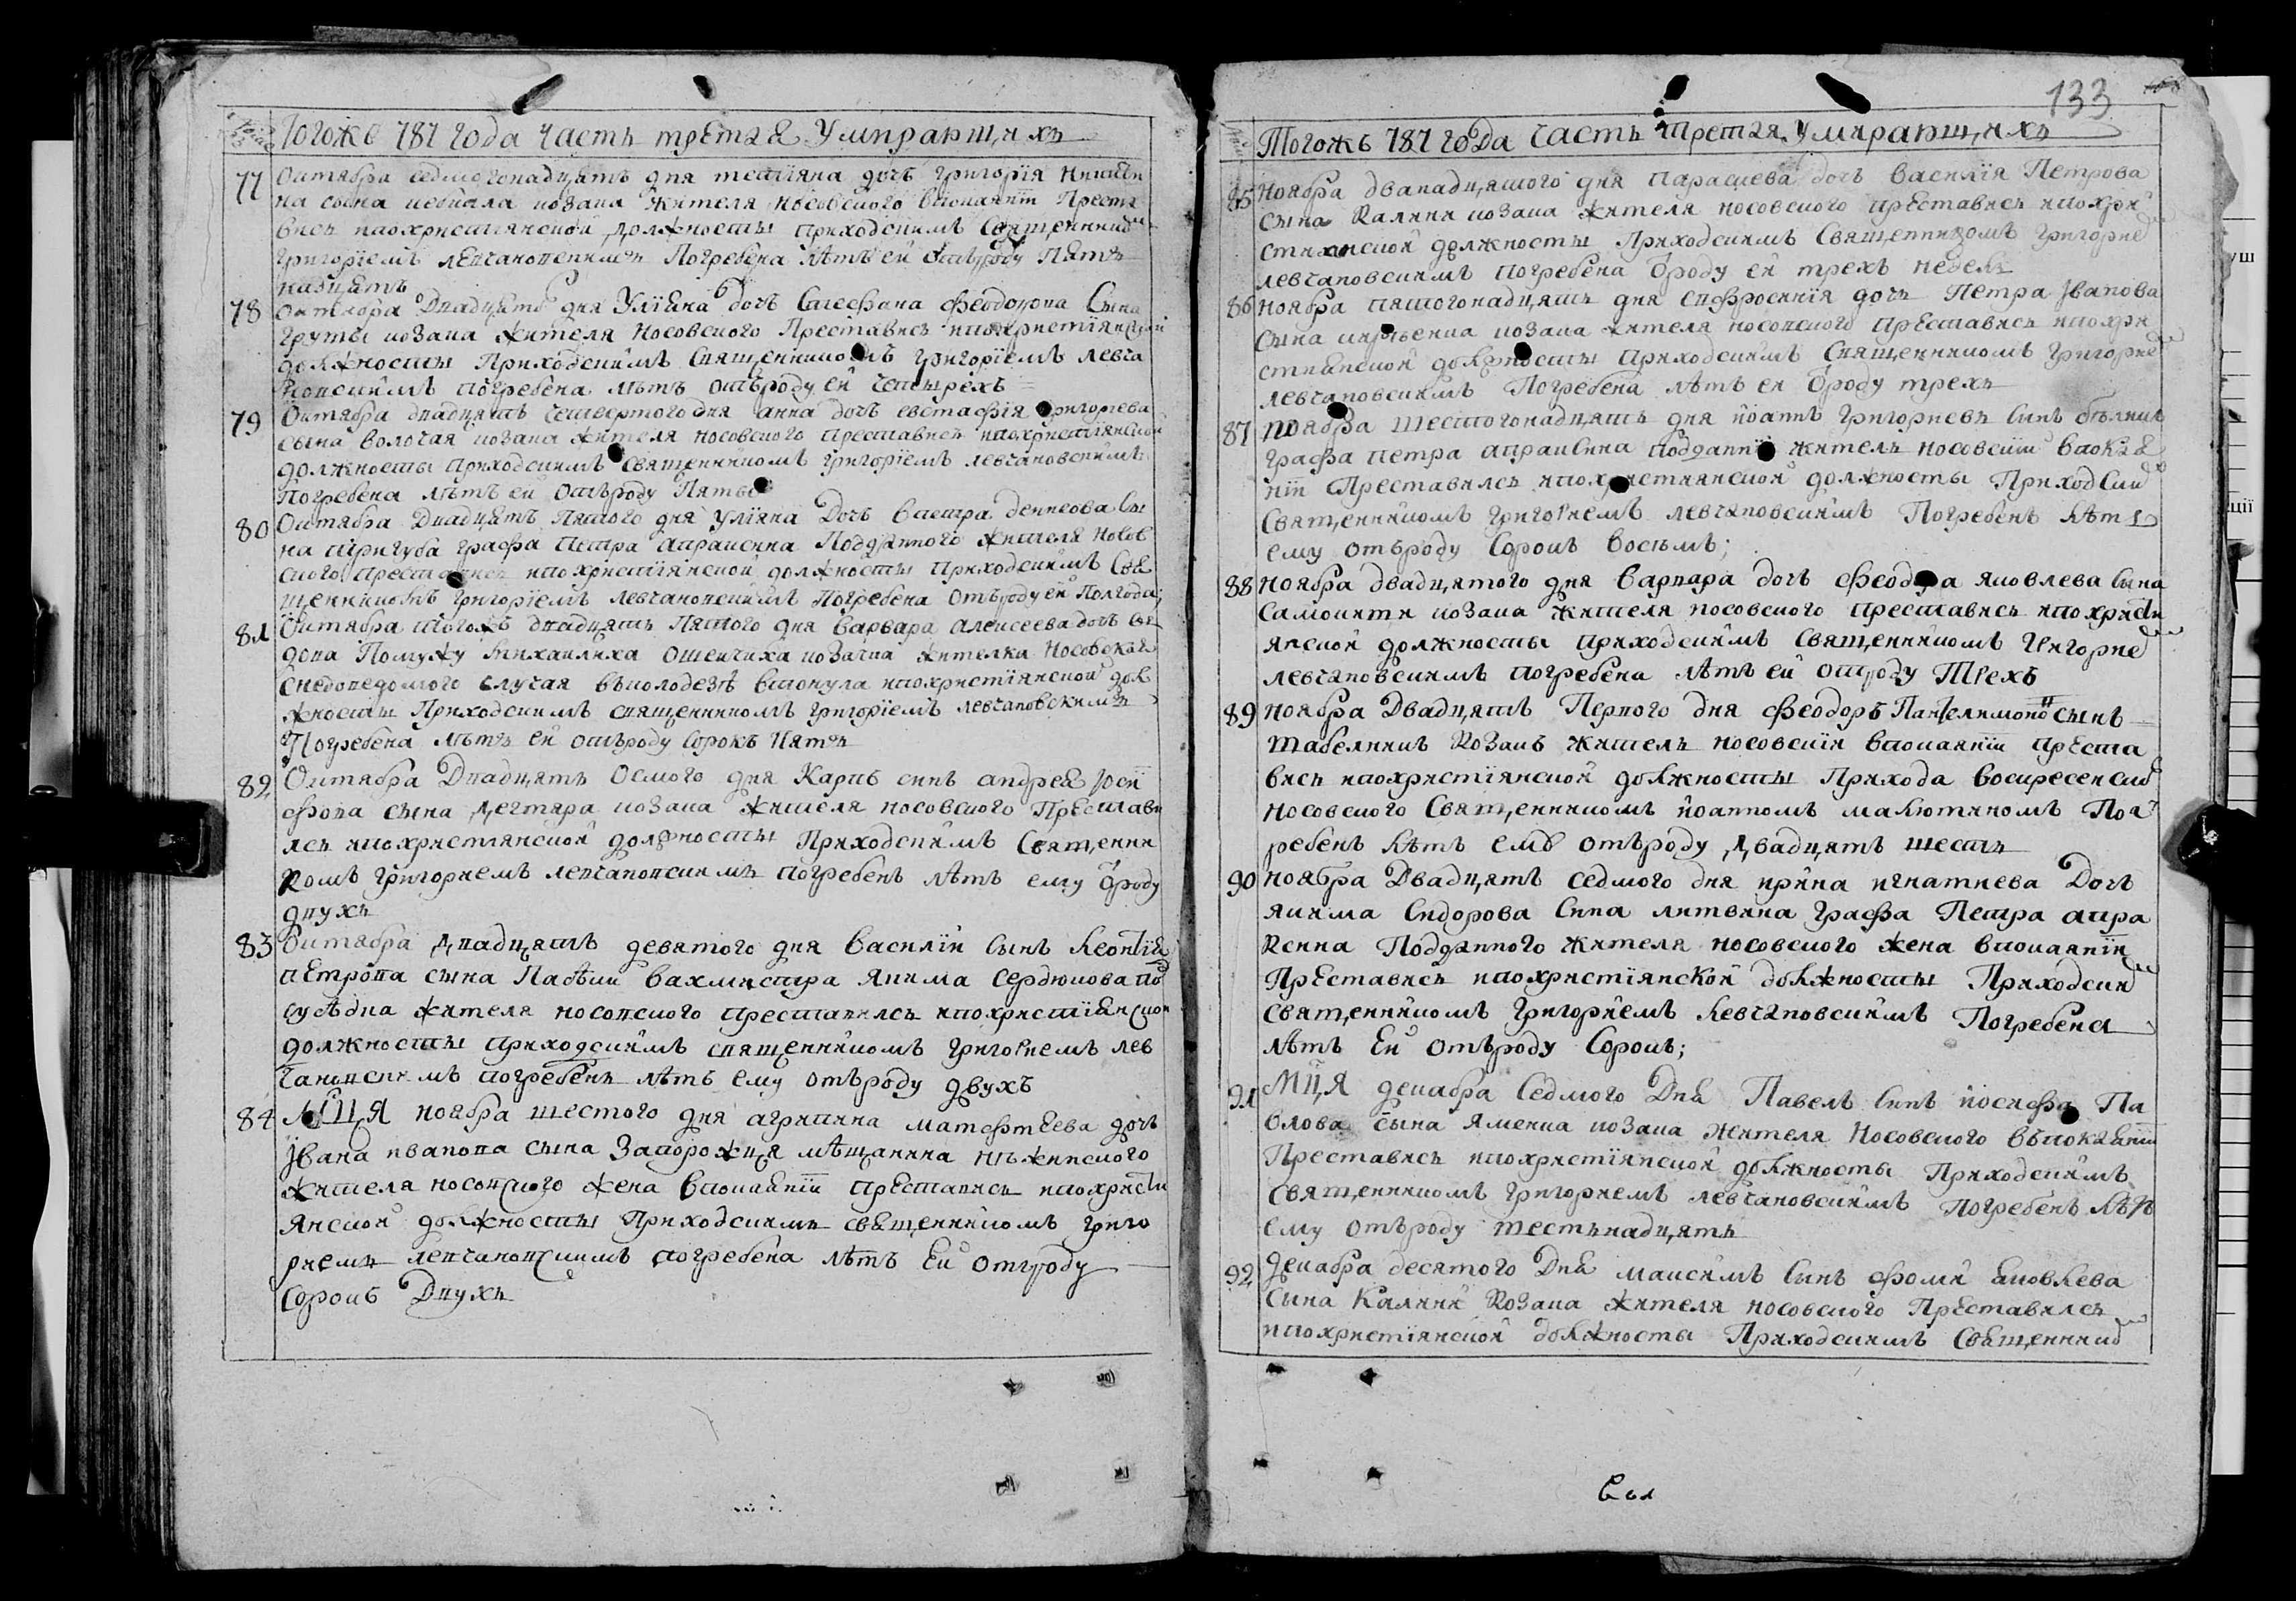 Тогожъ 787 года часть третяя Умирающихъ
77 Октября седмогонадцять дня тетіяна дочь григорія
на сына козака жителя носовского впокаяніи Преста
вись похристіянской должносты приходскимъ Священнико
григоріемъ левчановскимъ Погребена лѣтъ ей отъроду Пять
надцять
78 Октября Двадцять дня Уліяна дочь Стефана феодорова Сына
груты козака жителя Носовского Преставись похристіянской
должносты Приходскимъ Священникомъ григоріемъ левча
новскимъ погребена лѣтъ отъроду ей четырехъ
79 Октября двадцять четвертого дня анна дочь евстафія григориева
сына волочая козака жителя носовского преставись похристіянской
должносты приходскимъ священникомъ григоріемъ левчановскимъ
Погребена лѣтъ ей отъроду Пяты
80 Октября Двадцять Пятого дня уліяна Дочь денисова Сы
на тригуба графа Петра апраксина Подданного жителя носов
ского преставись похристіянской должносты приходскимъ Свя
щенникомъ григоріемъ левчановскимъ Погребена отъроду ей Полгода;
81 Октября тогожъ двадцять Пятого дня варвара алексеева дочь в
дова Помужу михаилиха козачка жителка носовская
снедоведомого случая вколодезѣ втонула похристіянской дол
жносты Приходскимъ священникомъ григоріемъ левчановскимъ
Погребена лѣтъ ей отъроду сорокъ Пять
82 Октября Двадцять Осмого дня Карпъ синъ андрея Иосі
фова сына Дегтяра козака жителя носовского Преставы
лсь похристіянской должносты Приходскимъ Священни
комъ григориемъ левчановскимъ погребенъ лѣтъ ему ѿроду
двухъ
83 Октября двадцять девятого дня василій сынъ леонтія
петрова сына Палѣй вахмистра якима Сердюкова по
сусѣдка жителя носовского преставилсь похристіянской
должносты приходскимъ священникомъ григориемъ лев
чановскимъ погребенъ лѣтъ ему отъроду двухъ
84 Мця ноября шестого дня агрипина матфеева дочь
Ивана иванова сына Запорожця мѣщанина нѣжинского
жителя носовского жена впокаяніи преставись похристи
янской должносты приходскимъ священникомъ григо
риемъ левчановскимъ погребена лѣтъ ей отъроду
сорокъ Двухъ
133
Тогожъ 787 года часть третяя умирающихъ
85 Ноября дванадцятого дня параскева дочь василія Петрова
сына Калини козака жителя носовского преставись похри
стиянской должносты Приходскимъ Священникомъ григорие
левчановскимъ погребена ѿроду ей трехъ недель
86 Ноября пятогонадцять дня евфросинія дочь Петра Иванова
сына козака жителя носовского преставись похри
стиянской должносты приходскимъ Священникомъ григорие
левчановскимъ Погребена лѣтъ ей ѿроду трехъ
87 ноября шестогонадцять дня иоаннъ григориевъ Синъ
графа петра апраксина подданній житель носовскій впокая
ніи Преставилсь похристиянской должносты Приходски
Священникомъ григориемъ левчановскимъ Погребенъ лѣтъ
ему отъроду Сорокъ восемъ;
88 Ноября двадцятого дня варвара дочь феодора яковлева Сына
самокити козака жителя носовского преставись похристи
янской должносты приходскимъ священникомъ григорие
левчановскимъ погребена лѣтъ ей отроду Трехъ
89 ноября Двадцять Первого дня феодоръ Пантелимоно сынъ
табелникъ Козакъ житель носовскій впокаяніи преста
вись похристіянской должносты Прихода воскресенско
носовского Священникомъ иоанномъ малютиномъ Пог
ребенъ лѣтъ ему отъроду двадцять шесть
90 ноября Двадцять седмого дня ирина игнатиева Дочь
якима Сидорова Сина литвина графа Петра апра
ксина Подданного жителя носовского жена впокаяніи
Преставись похристіянской должносты Приходски
священникомъ григориемъ левчановскимъ Погребена
лѣтъ ей отъроду Сорокъ;
91 Мця декабря Седмого Дня Павелъ Синъ иосифа Па
влова сына Яменка козака жителя Носовского впокаяніи
Преставись похристіянской должносты Приходскимъ
священникомъ григориемъ левчановскимъ погребенъ лѣтъ
ему отъроду шестьнадцять
92 Декабря десятого Дня максимъ Синъ фоми яковлева
сына Калини Козака жителя носовского Преставилсь
похристіянской должносты Приходскимъ Священнико